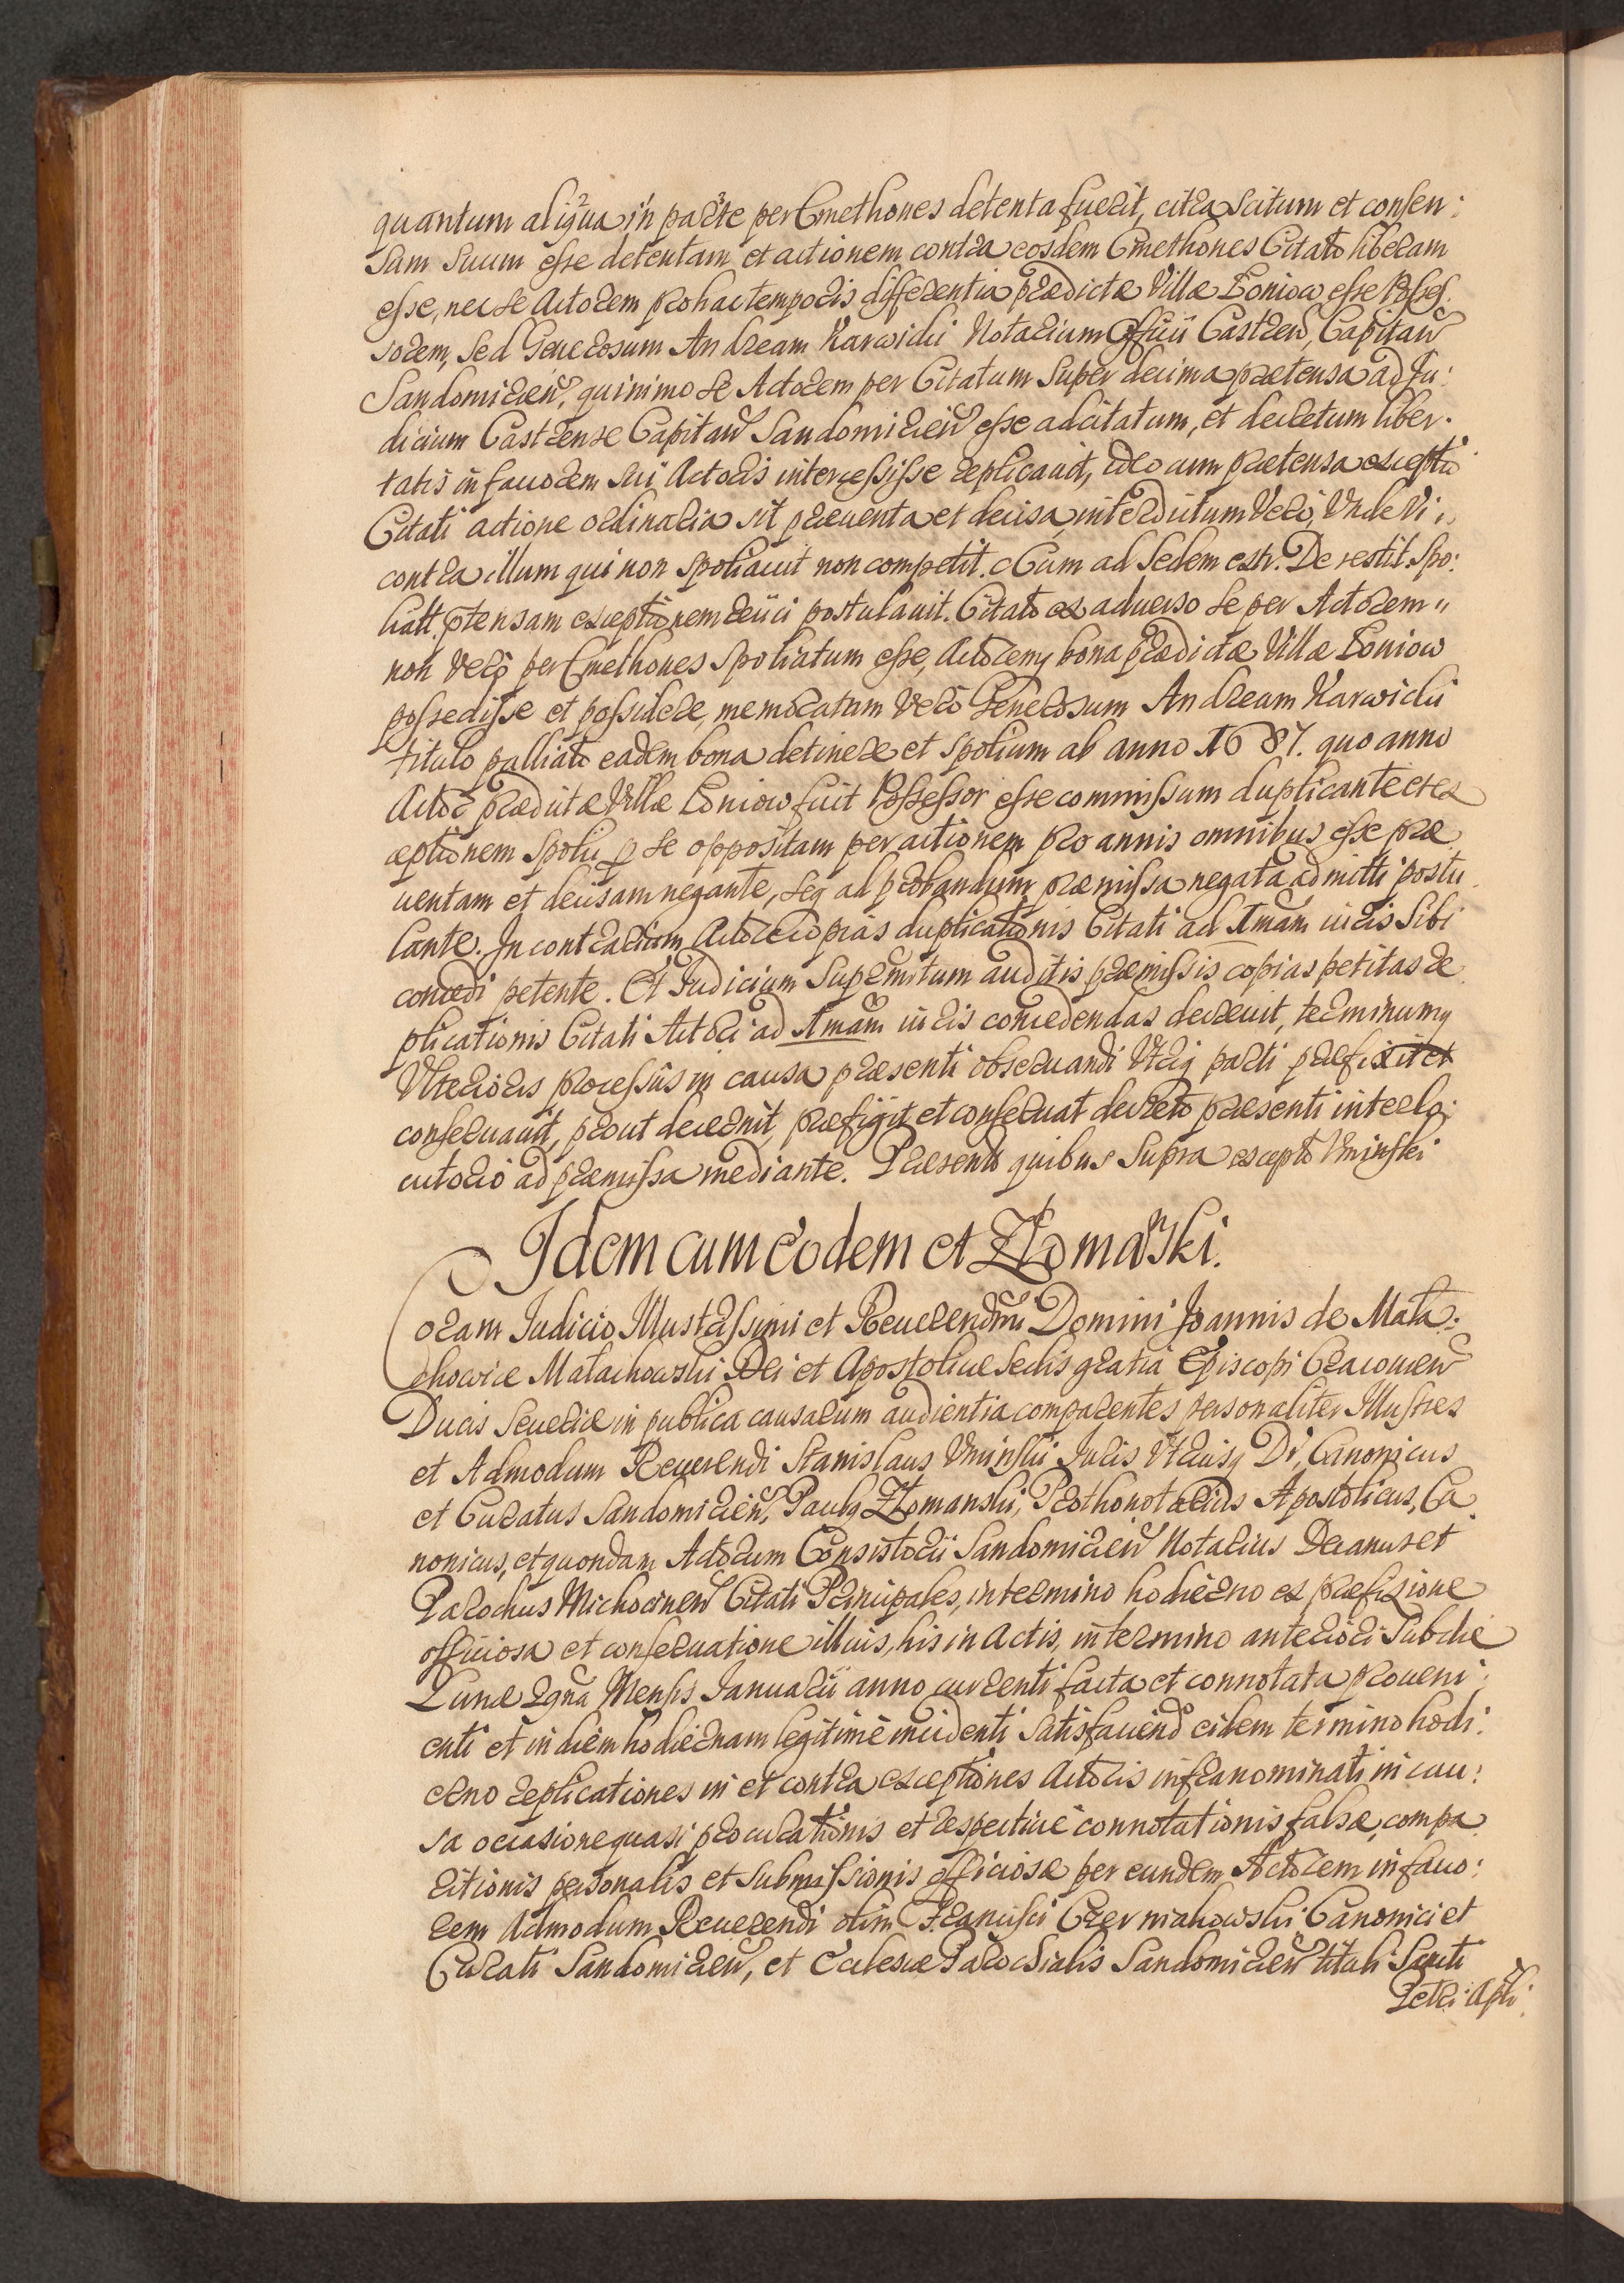 quantum aliqua in parte per Cmethones detenta fuerit, citra scitum et consen:
sum suum esse detentam et actionem contra eosdem Cmethones Citato liberam
esse, nec se Actorem pro hac temporis differentia prædictæ Villæ Łoniow esse Posses.
sorem, sed Generosum Andream Karwicki Notarium Officii Castren, Capitan
Sandomirien, quinimo se Actorem per Citatum super decima prætensa ad Ju:
dicium Castrense Capitan Sandomirien esse adcitatum, et decretum liber.
tatis in favorem sui Actoris intercessisse replicavit, ideo cum prætensa exceptio
Citati actione ordinaria sit præventa et decisa, interdictum Vero, Unde Vi,
contra illum qui non spoliavit non competit. Cum ad Sedem estr. De restit. Spo:
liatt. ptensam exceptionem reiici postulavit. Citato ex adverso se per Actorem
non vero per Cmethones spoliatum esse, Actoremq bona prædictæ Villæ Łoniow
possedisse et possidere, memoratum vero Generosum Andream Karwicki
titulo palliato eadem bona detinere et spolium ab anno 1687. quo anno
Actor prædictæ Villæ Łoniow fuit Possessor esse commissum duplicante et ex
ceptionem spolii p se oppositam per actionem pro annis omnibus esse præ
ventam et decisam negante, seq ad probandum præmissa negata admitti postu
lante. In contrarium Actore copias duplicationis Citati ad Imam iuris sibi
concedi petente. Et Judicium Supremitum auditis præmissis copias petitas re
plicationis Citati Actori ad Imam iuris concedendas decrevit, terminumq
Ulterioris processus in causa præsenti observandi Utriq parti præfixit et
conservavit, prout decernit, præfigit et conservat decreto præsenti interlo:
cutorio ad præmissa mediante. Præsentib quibus supra excepto Uminski
Idem cum eodem et Złomański.
Coram Judicio Illustrissimi et Reverendmi Domini Joannis de Mała:
chowice Małachowski Dei et Apostolicæ Sedis gratia Episcopi Cracovien
Ducis Severiæ in publica causarum audientia comparentes personaliter Illustres
et Admodum Reverendi Stanislaus Uminski Juris Utriusq Dr, Canonicus
et Curatus Sandomirien, Paulq Złomanski, Prothonotarius Apostolicus, Ca
nonicus, et quondam Actorum Consistorii Sandomirien Notarius Decanus et
Parochus Michocinen Citati Principales, in termino hodierno ex præfixione
officiosa et conservatione illius, his in Actis, in termino anteriori Sub die
Lunæ 2gna Mensis Januarii anno currenti facta et connotata proveni:
enti et in diem hodiernam legitime incidenti satisfaciend eidem termino hodi:
erno replicationes in et contra exceptiones Actoris infranominati in cau:
sa occasione quasi procurationis et respective connotationis falsæ, compa
ritionis personalis et submissionis officiosæ per eundem Actorem in favo:
rem Admodum Reverendi olim Francisci Czerniakowski Canonici et
Curati Sandomirien, et Ecclesiæ Parochialis Sandomirien tituli Sancti
Petri Apli